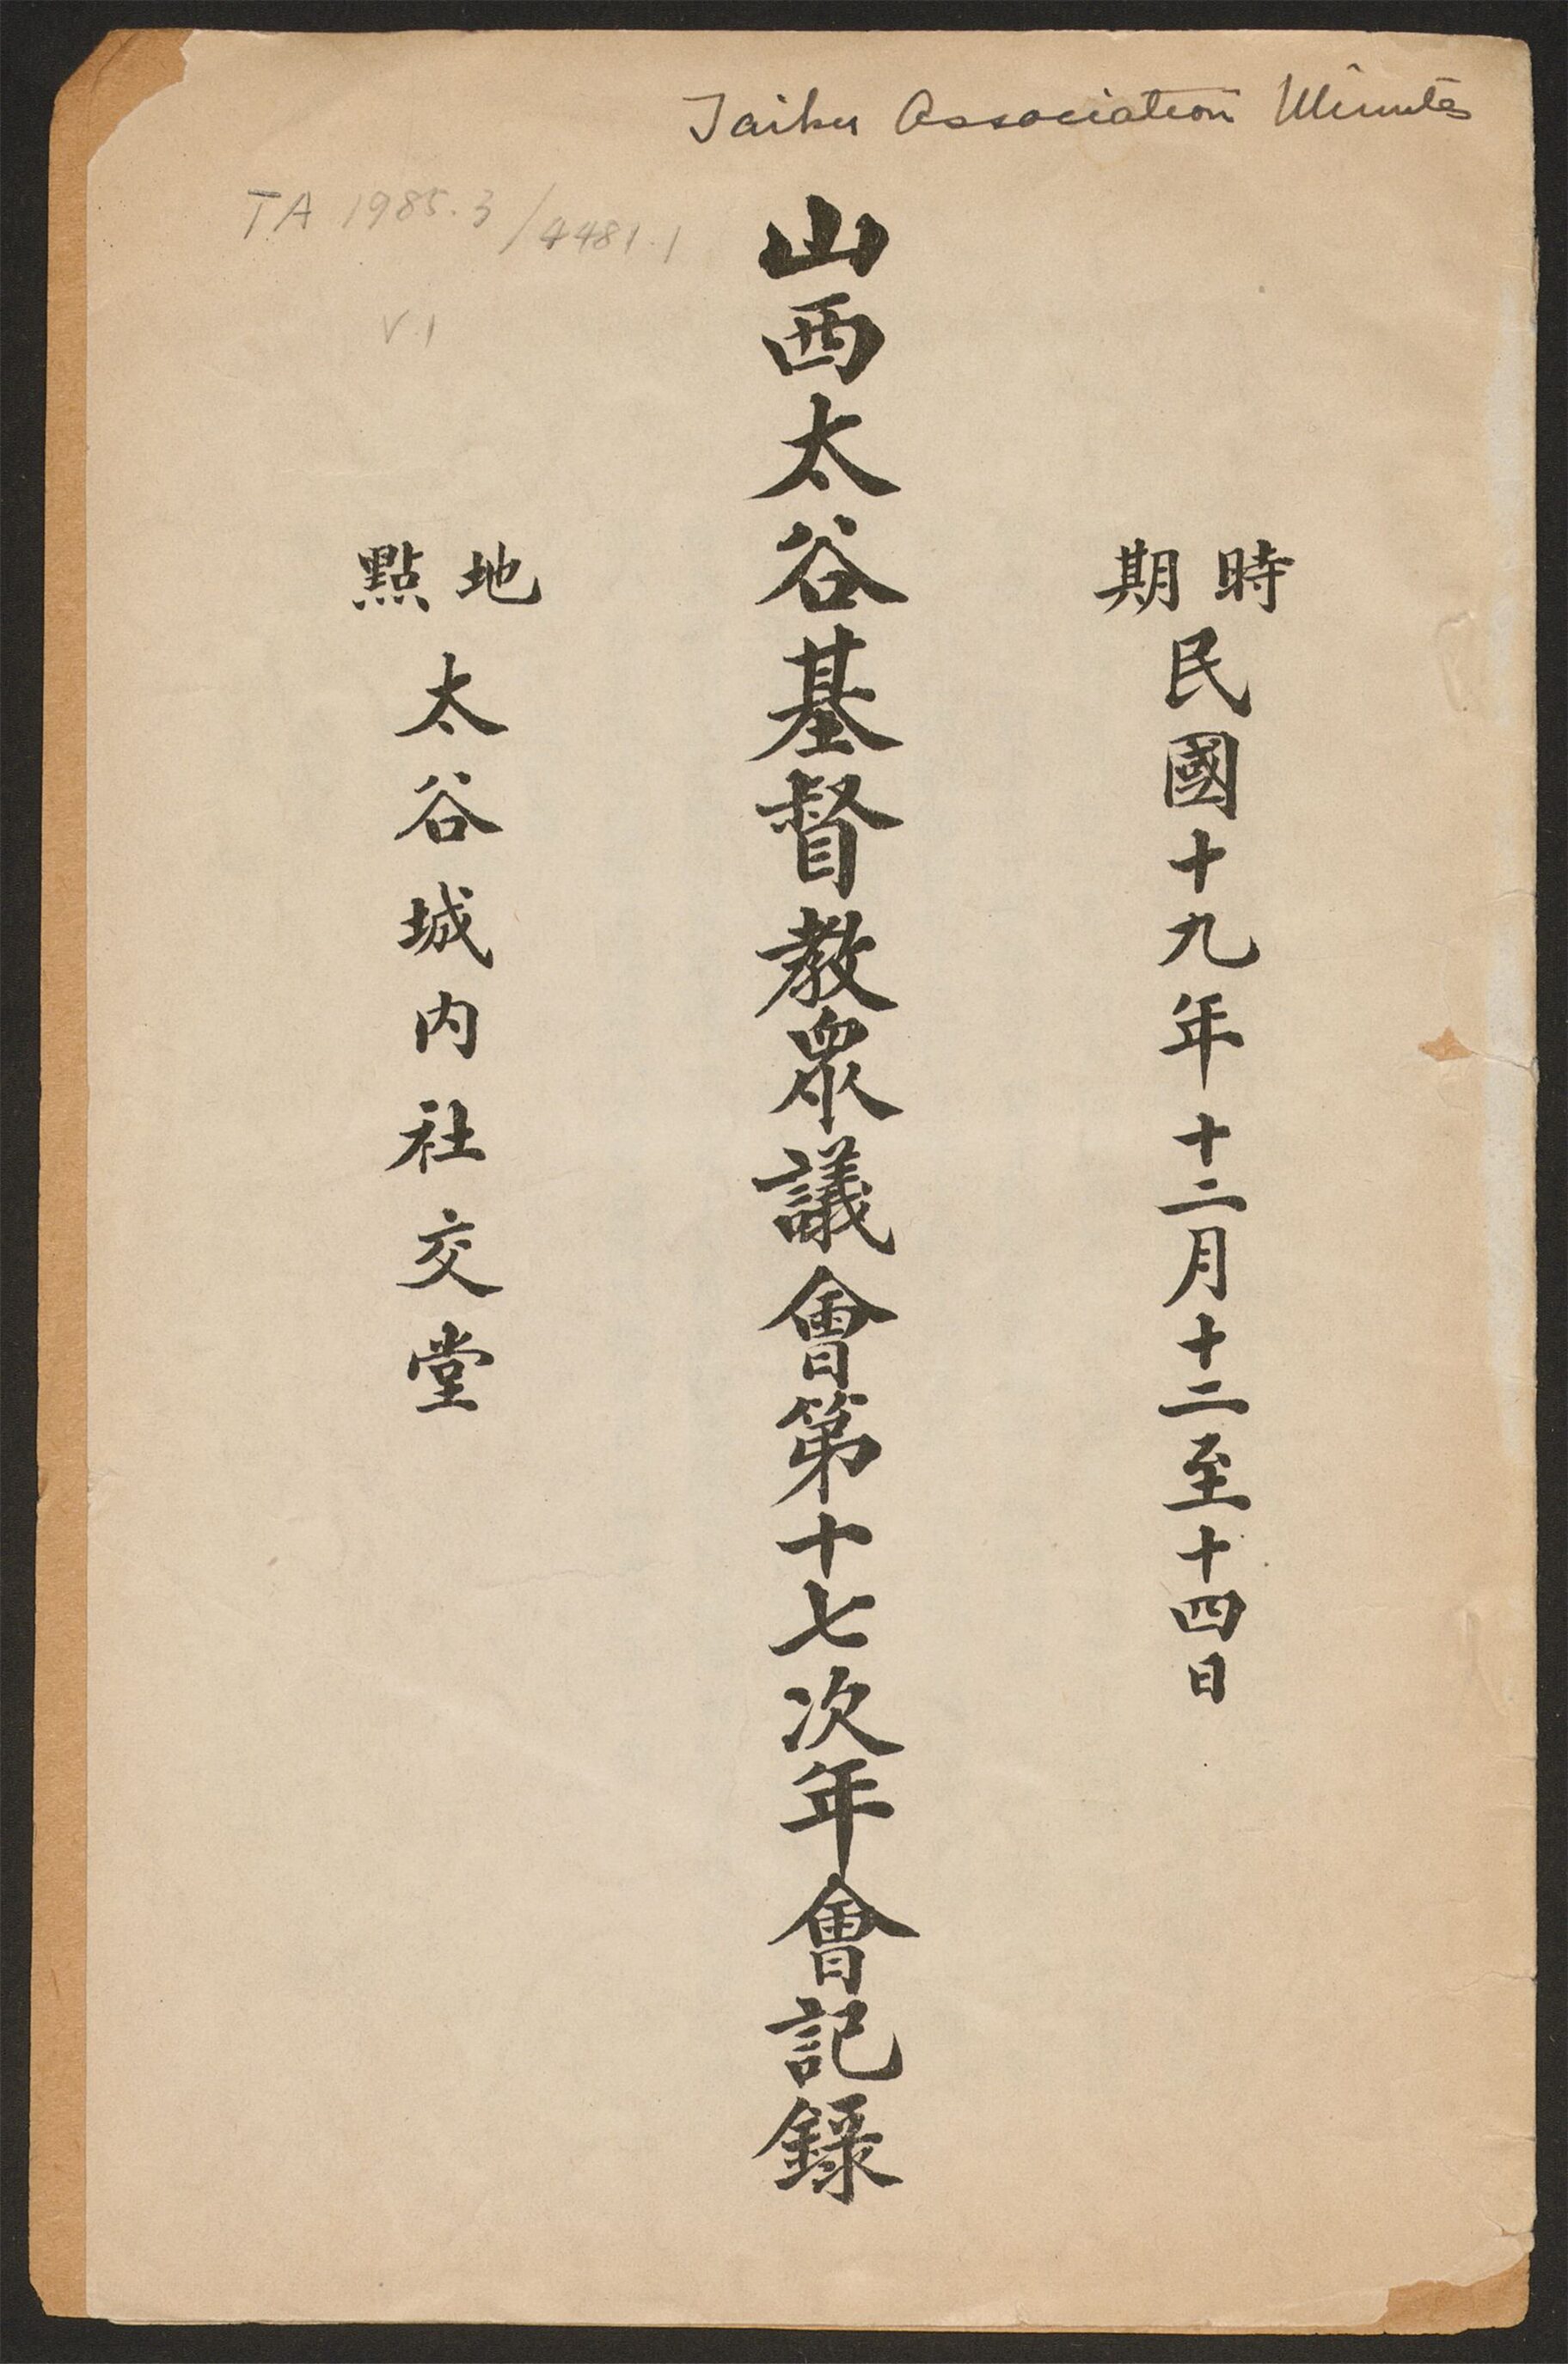 Taiku Association Minutes
TA 1985.3/4481.1
V.1
時期
民國十九年十二月十二至十四日
山西太谷基督教眾議會第十七次年會記錄
地點
太谷城内社交堂